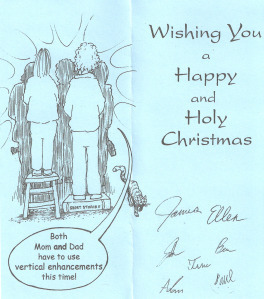 Both
Mom and Dad
have to use
vertical enhancements
this time!
Wishing You
a
Happy
and
Holy
Christmas
James Ellen
Ben